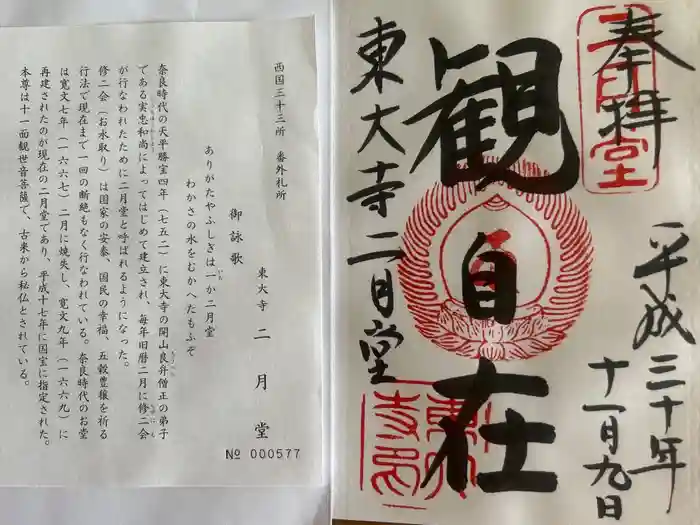 西国三十三所 番外札所
東大寺 二月堂
御詠歌
ありがたやふしぎは一か二月堂
わかさの水をむかへたもふぞ
奈良時代の天平勝宝四年(七五二)に東大寺の開山良弁僧正の弟子
である実忠和尚によってはじめて建立され、毎年旧暦二月に修二会
が行なわれたために二月堂と呼ばれるようになった。
修二会(お水取り)は国家の安泰、国民の幸福、五穀豊穣を祈る
行法で現在まで一回の断絶もなく行なわれている。奈良時代のお堂
は寛文七年(一六六七)二月に焼失し、寛文九年(一六六九)に
再建されたのが現在の二月堂であり、平成十七年に国宝に指定された。
本尊は十一面観世音菩薩で、古来から秘仏とされている。
№ 000577
奉拝
二月堂
平成三十年
十一月九日
観自在
東大寺二月堂